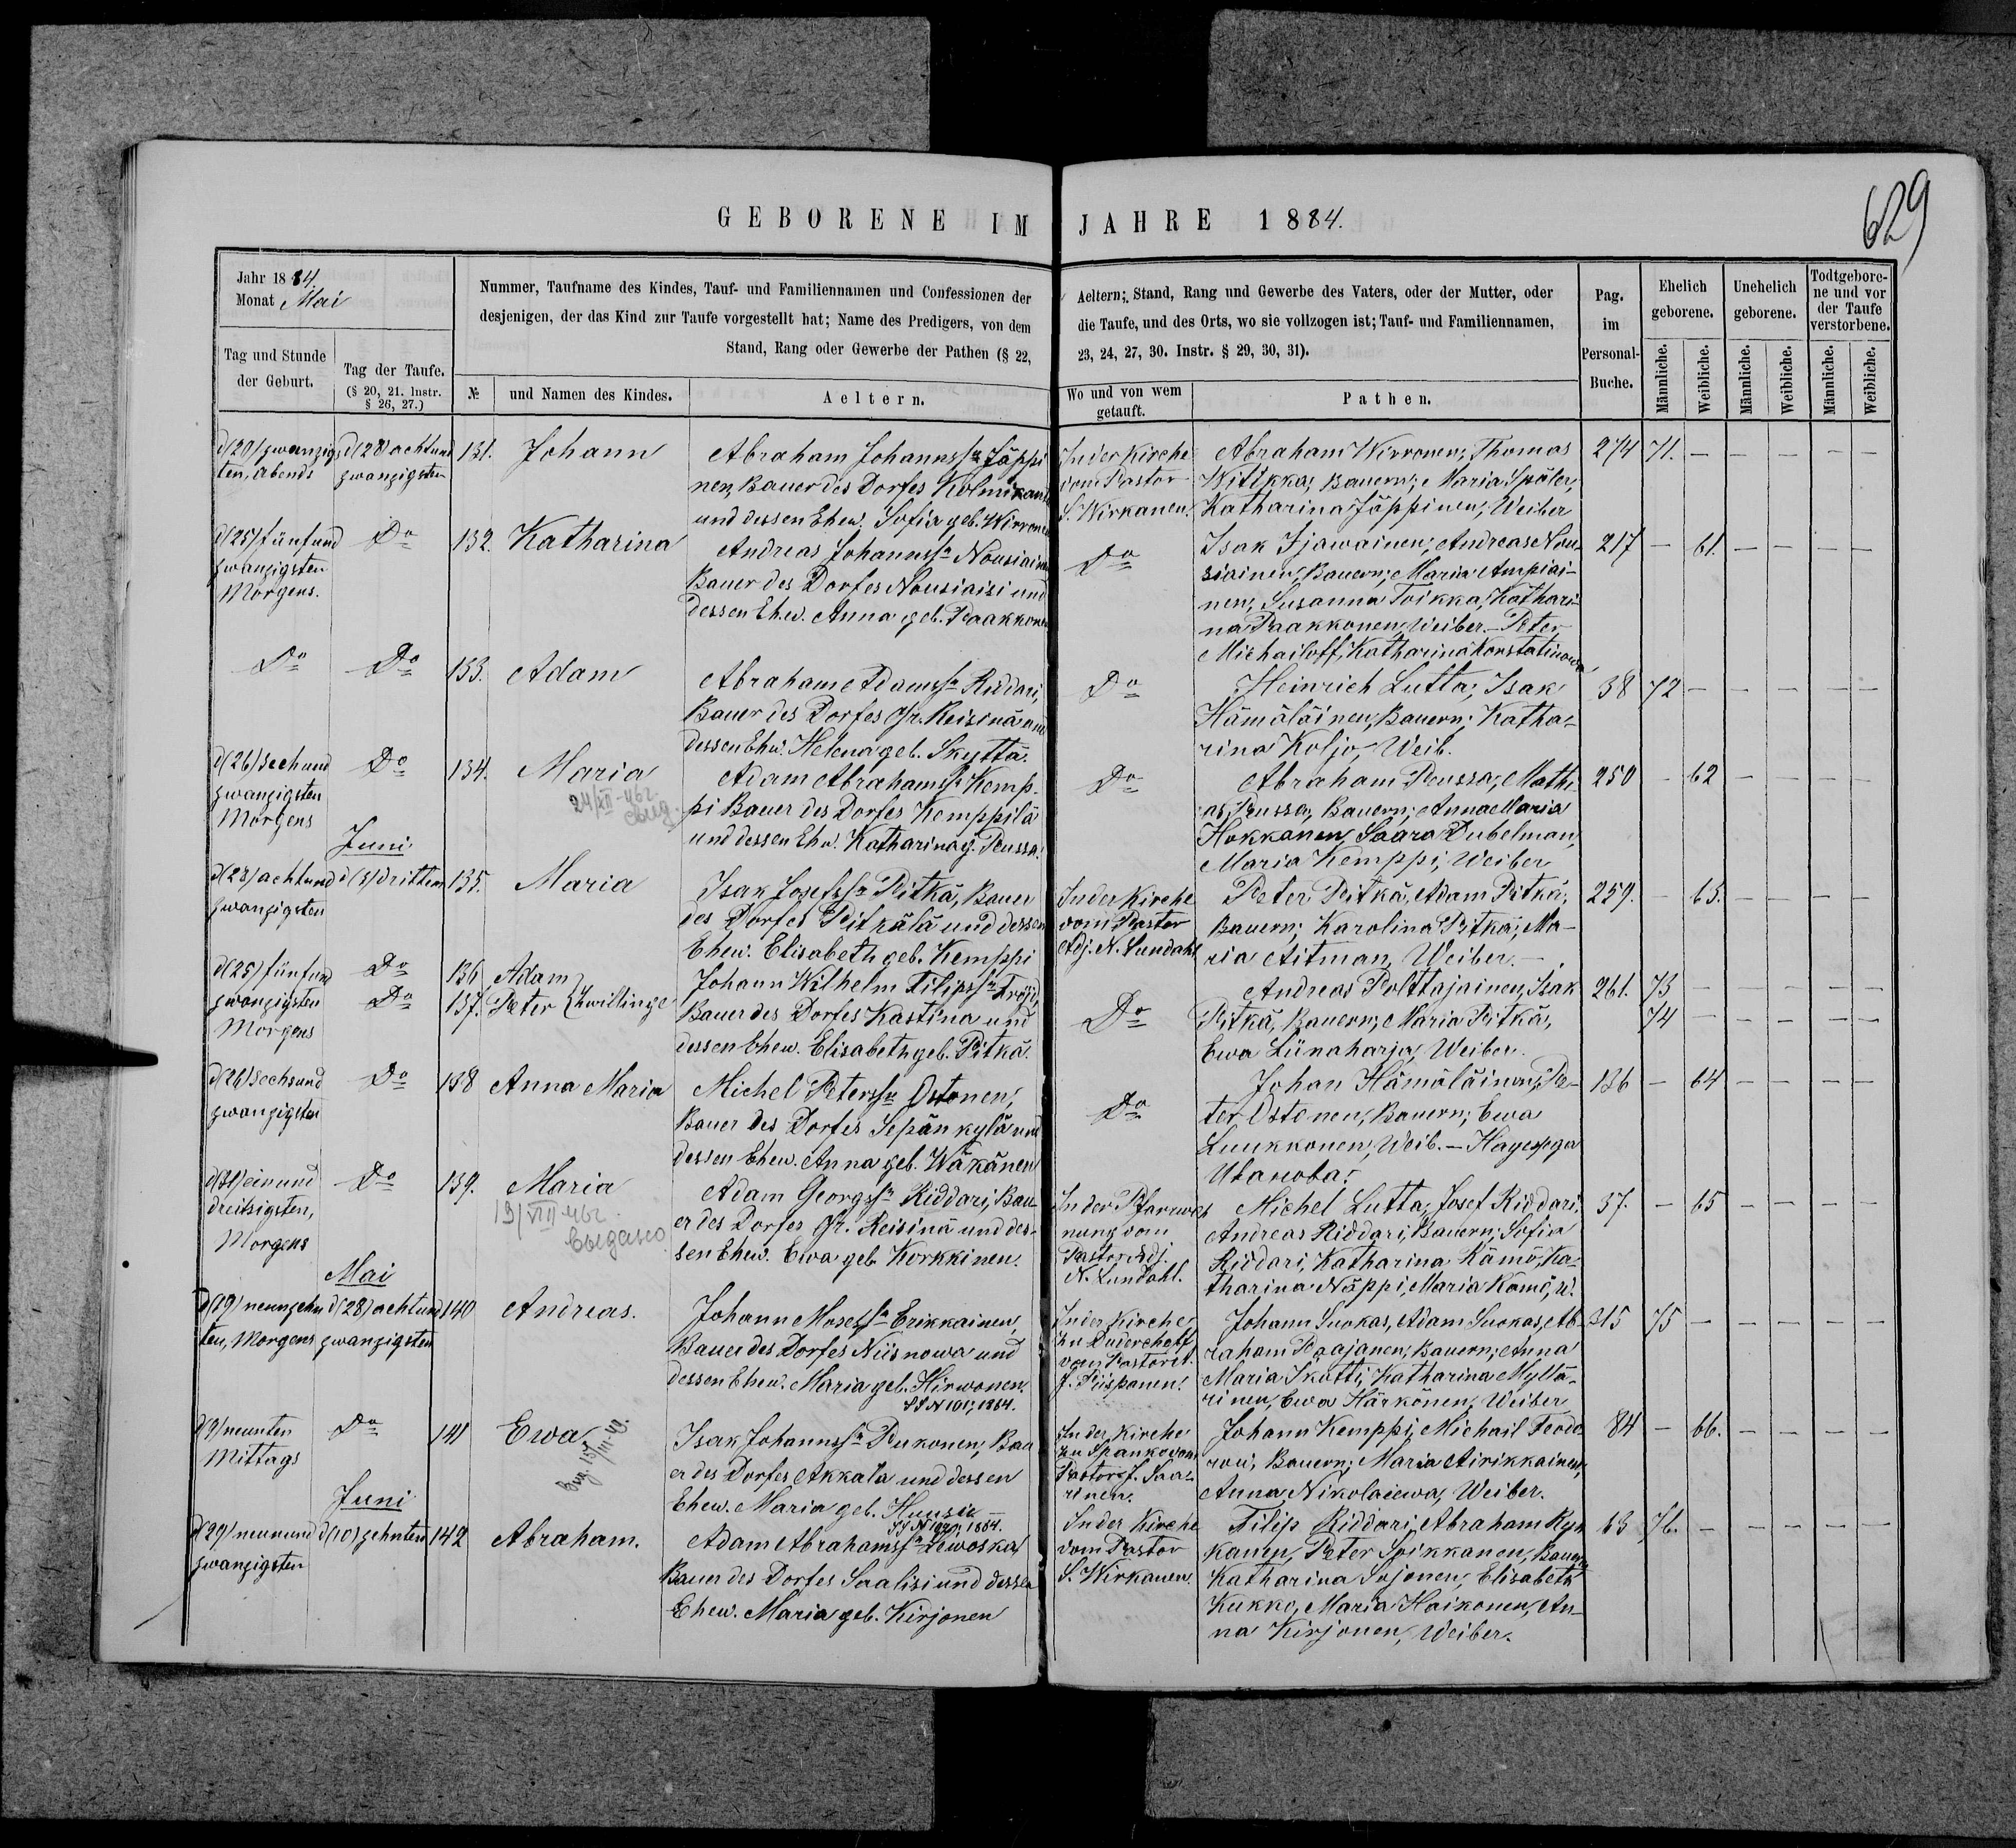 629
GEBORENE IM JAHRE 1884.
Jahr 1884.
Monat Mai
Tag und Stunde
der Geburt.
Tag der Taufe.
(§ 20, 21. Instr.
§ 26, 27.)
Nummer, Taufname des Kindes, Tauf- und Familiennamen und Confessionen der
desjenigen, der das Kind zur Taufe vorgestellt hat; Name des Predigers, von dem
Stand, Rang oder Gewerbe der Pathen (§ 22,
№
und Namen des Kindes.
Aeltern.
Aeltern; Stand, Rang und Gewerbe des Vaters, oder der Mutter, oder
die Taufe, und des Orts, wo sie vollzogen ist; Tauf- und Familiennamen,
23, 24, 27, 30. Instr. § 29, 30, 31).
Wo und von wem
getauft.
Pathen.
Pag.
im
Personal-
Buche.
Ehelich
geborene.
Unehelich
geborene.
Todtgebore-
ne und vor
der Taufe
verstorbene.
Männliche.
Weibliche.
Männliche.
Weibliche.
Männliche.
Weibliche.
d(20) zwanzigs
ten, Abends
d(28) achtund
zwanzigsten
131. Johann
Abraham Johannssn Jäppi
nen, Bauer des Dorfes Kolmikand
und dessen Ehew. Sofia geb. Wirronen
In der Kirche
vom Pastor
S. Wirkanen.
Abraham Wirronen, Thomas
Witikka, Bauern; Maria Späler,
Katharina Jäppinen, Weiber
274 71. — — — — —
d(25) fünfund
zwanzigsten
Morgens.
Do
132. Katharina
Andreas Johannssn Nousiainen
Bauer des Dorfes Nousiaisi und
dessen Ehw. Anna geb. Paakkonen
Do
Isak Ijawainen, Andreas Nou-
siainen, Bauern; Maria Ampiai-
nen, Susanna Toikka, Kathari-
na Paakkonen, Weiber. Peter
Michailoff, Katharina Konstatinowa
217 — 61. — — — —
Do
Do
133. Adam
Abraham Adamssn Riddari,
Bauer des Dorfes Gr. Reisinä und
dessen Ehw. Helena geb. Skyttä.
Do
Heinrich Lutta, Isak
Hämäläinen, Bauern; Katha-
rina Koljo, Weib.
38 72 — — — — —
d(26) sechund
zwanzigsten
Morgens
Do
134. Maria
24/XII-46г.
Adam Abrahamssn Kemp-
pi Bauer des Dorfes Kemppilä
und dessen Ehw. Katharina g. Peussa.
Do
Abraham Peussa, Mathi
as Peussa, Bauern; Anna Maria
Hokkanen, Saara Dubelman,
Maria Kemppi, Weiber
250 — 62 — — — —
Juni
d(28) achtund
zwanzigsten
d(3) dritten
135. Maria
Isak Josefssn Pitkä, Bauer
des Dorfes Pitkälä und dessen
Ehew. Elisabeth geb. Kemppi
In der Kirche
vom Pastor
Adj. N. Lundahl
Peter Pitkä, Adam Pitkä,
Bauern; Karolina Pitkä, Ma-
ria Aitman, Weiber.
259. — 63. — — — —
d(25) fünfund
zwanzigsten
Morgens
Do
Do
136 Adam
137. Peter } Zwillinge
Johann Wilhelm Filipssn Fröjd,
Bauer des Dorfes Kastina und
dessen Ehew. Elisabeth geb. Pitkä.
Do
Andreas Polttajainen, Isak
Pitkä, Bauern; Maria Pitkä,
Ewa Liinaharja, Weiber.
261. 73 — — — — —
74 — — — — —
d(26) sechsund
zwanzigsten
Do
138 Anna Maria
Michel Peterssn Ostonen,
Bauer des Dorfes Sepän kylä und
dessen Ehew. Anna geb. Wäkänen
Do
Johan Hämäläinen, Pe-
ter Ostonen, Bauern; Ewa
Luukkonen, Weib. — Надежда
Иванова.
136 — 64 — — — —
d(31) einund
dreitsigsten,
Morgens
Do
139. Maria
19/VIII 46г.
выдано
Adam Georgssn Riddari, Bau-
er des Dorfes Gr. Reisinä und des-
sen Ehew. Ewa geb. Korkkinen.
In der Pfarrwoh
nung vom
Pastor Adj.
N. Lundahl.
Michel Lutta, Josef Riddari,
Andreas Riddari, Bauern; Sofia
Riddari, Katharina Rämö, Ka-
tharina Näppi, Maria Kamö, W.
37. — 65 — — — —
Mai
d(19) neunzehn
ten, Morgens
d(28) achtund
zwanzigsten
140 Andreas.
Johann Mosessn Erikkainen,
Bauer des Dorfes Niisnowa und
dessen Ehew. Maria geb. Hirwonen.
SS N 101; 1884.
In der Kirche
zu Duderchoff
vom Pastor
J. Piispanen.
Johann Suokas, Adam Suokas, Ab
raham Paajanen, Bauern; Anna
Maria Skötti, Katharina Myllä-
rinen, Ewa Härkönen, Weiber
315 75 — — — — —
d(9) neunten
Mittags
Do
141 Ewa
Isak Johannssn Pukonen, Bau
er des Dorfes Akkala und dessen
Ehew. Maria geb. Huusia
In der Kirche
zu Spankova
Pastor J. Saa-
rinen.
Johann Kemppi, Michail Feodo
row, Bauern; Maria Airikkainen,
Anna Nikolaiewa, Weiber.
84 — 66. — — — —
Juni
d(29) neunund
zwanzigsten
d(10) zehnten
142 Abraham.
Adam Abrahamssn Lewoska
Bauer des Dorfes Saalisi und dessen
Ehew. Maria geb. Kirjonen
In der Kirche
vom Pastor
S. Wirkanen.
Filip Riddari, Abraham Ryh
kanen, Peter Soikkanen, Bauern
Katharina Sojonen, Elisabeth
Kukko, Maria Haikonen, An-
na Kirjonen, Weiber.
63 76. — — — — —